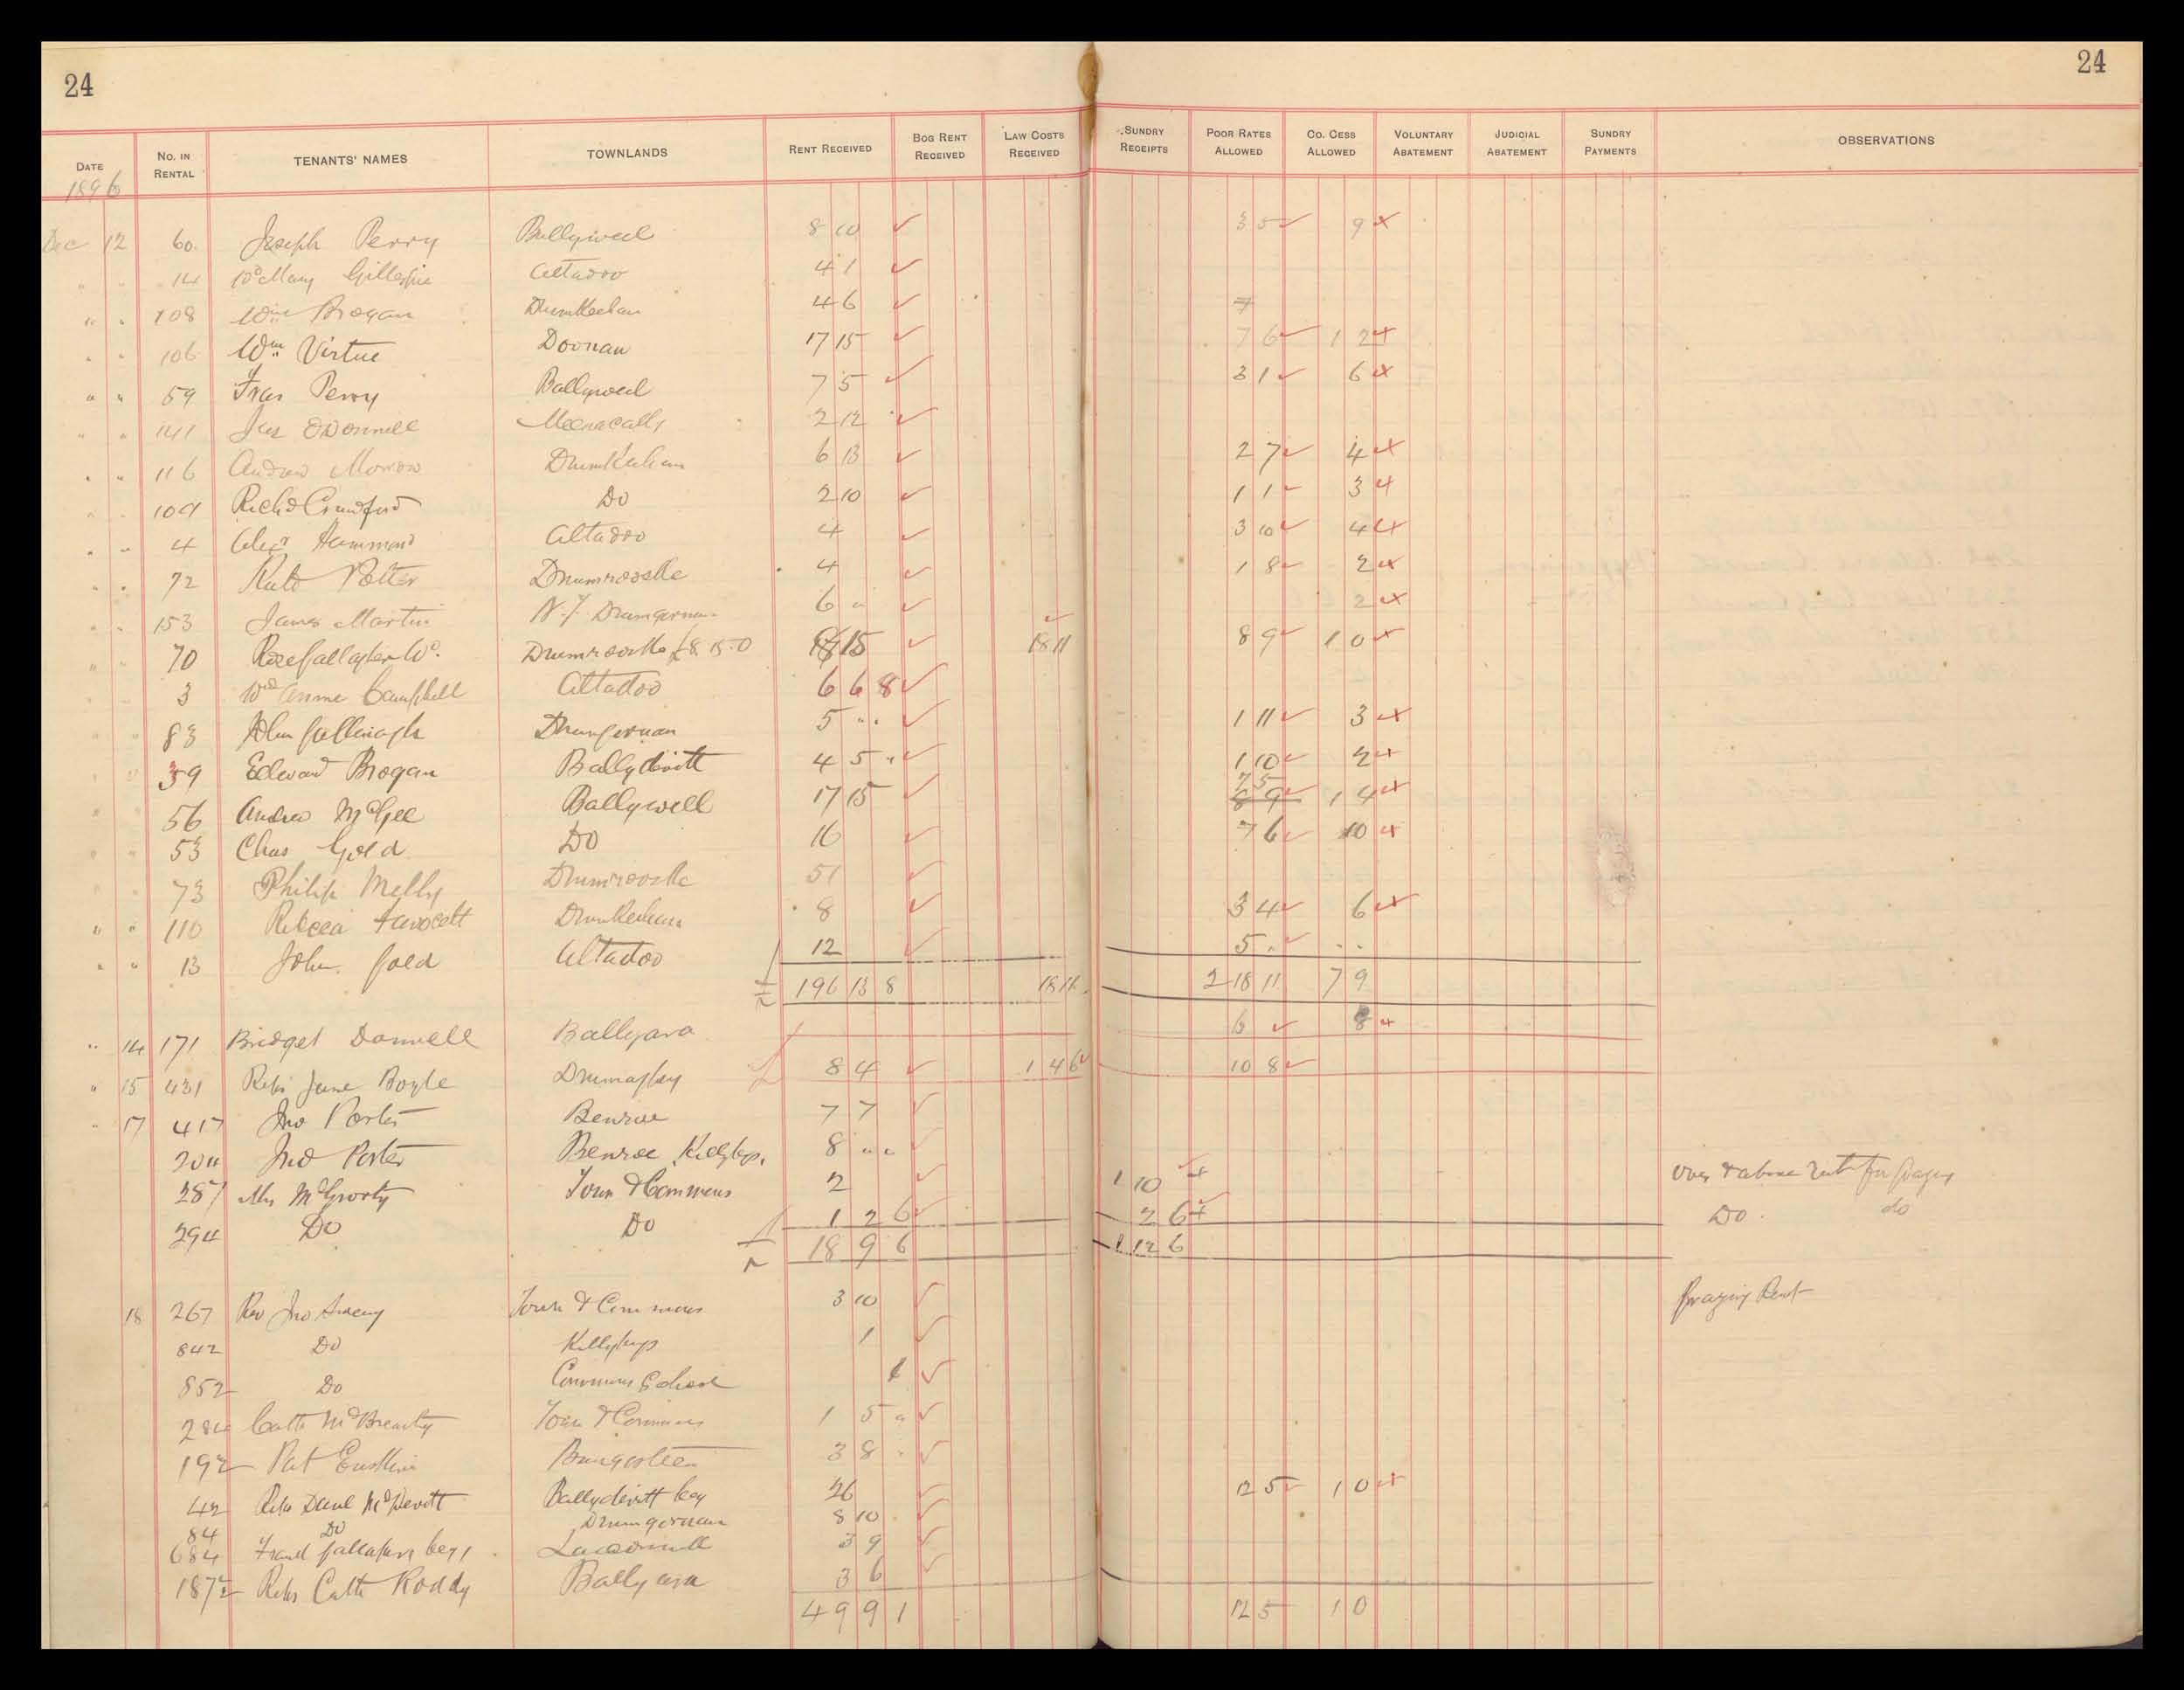 24
24
DATE
No. IN RENTAL
TENANTS' NAMES
TOWNLANDS
RENT RECEIVED
BOG RENT RECEIVED
LAW COSTS RECEIVED
SUNDRY RECEIPTS
POOR RATES ALLOWED
CO. CESS ALLOWED
VOLUNTARY ABATEMENT
JUDICIAL ABATEMENT
SUNDRY PAYMENTS
OBSERVATIONS
1896
Dec 12 60 Joseph Perry Ballyweel 8 10 3 5 9
" " 14 Wd Mary Gillespie Altadoo 4 1
" " 108 Wm Brogan Drumkeelan 4 6 7
" " 106 Wm Virtue Doonan 17 15 7 6 1 2
" " 59 Fras Perry Ballyweel 7 5 3 1 6
" " 141 Jas O'Donnell Meenacally 2 12
" " 116 Andrew Morrow Drumkeelan 6 13 2 7 4
" " 109 Richd Crawford Do 2 10 1 1 3
" " 4 Alexr Hammond Altadoo 4 3 10 4
" " 72 Potter Drumrooske 4 1 8 2
" " 153 James Martin Drumgorman 6 " 2
" " 70 Rose Gallagher Wd. Drumrooske £8.15.0 8 15 18 11 8 9 1 0
" " 3 Wd Anne Campbell Altadoo 6 6 8
" " 83 John Gallinagh Drumgornan 5 " " 1 11 3
" " 39 Edward Brogan Ballydevitt 4 5 " 1 10 2
7 5
" " 56 Andrew McGee Ballyweel 17 15 8 9 1 4
" " 53 Chas Gold Do 16 7 6 10
" " 73 Philip Melly Drumrooske 51
" " 110 Rebecca Fawcett Drumkeelan 8 3 4 6
" " 13 John Gold Altadoo 12 5 " " "
196 13 8 18 11 2 18 11 7 9
" 14 171 Bridget Donnell Ballyara 6 8
" 15 431 Reps Jane Boyle Drumagley 8 4 1 4 6 10 8
" 17 417 Jno Porter Benroe 7 7
204 Jno Porter Benroe Killybegs. 8 " "
287 Mrs McGroarty Town & Commons 2 1 10 Over & above rent for grazing
294 Do Do 1 2 6 2 6 Do do
18 9 6 1 12 6
18 267 Rev Jno Sweeny Town & Commons 3 10 Grazing Rent
842 Do Killybegs 1
852 Do Commons School 1
284 Cath McBrearty Town & Commons 1 5 "
192 Pat Erskine Bungosteen 3 8 "
42 Reps Danl McDevitt Ballydevitt beg 26 12 5 1 0
84 Do Drumgornan 8 10
684 Frank Gallagher 3 9
187½ Reps Cath Roddy Ballyara 3 6
49 9 1 12 5 1 0